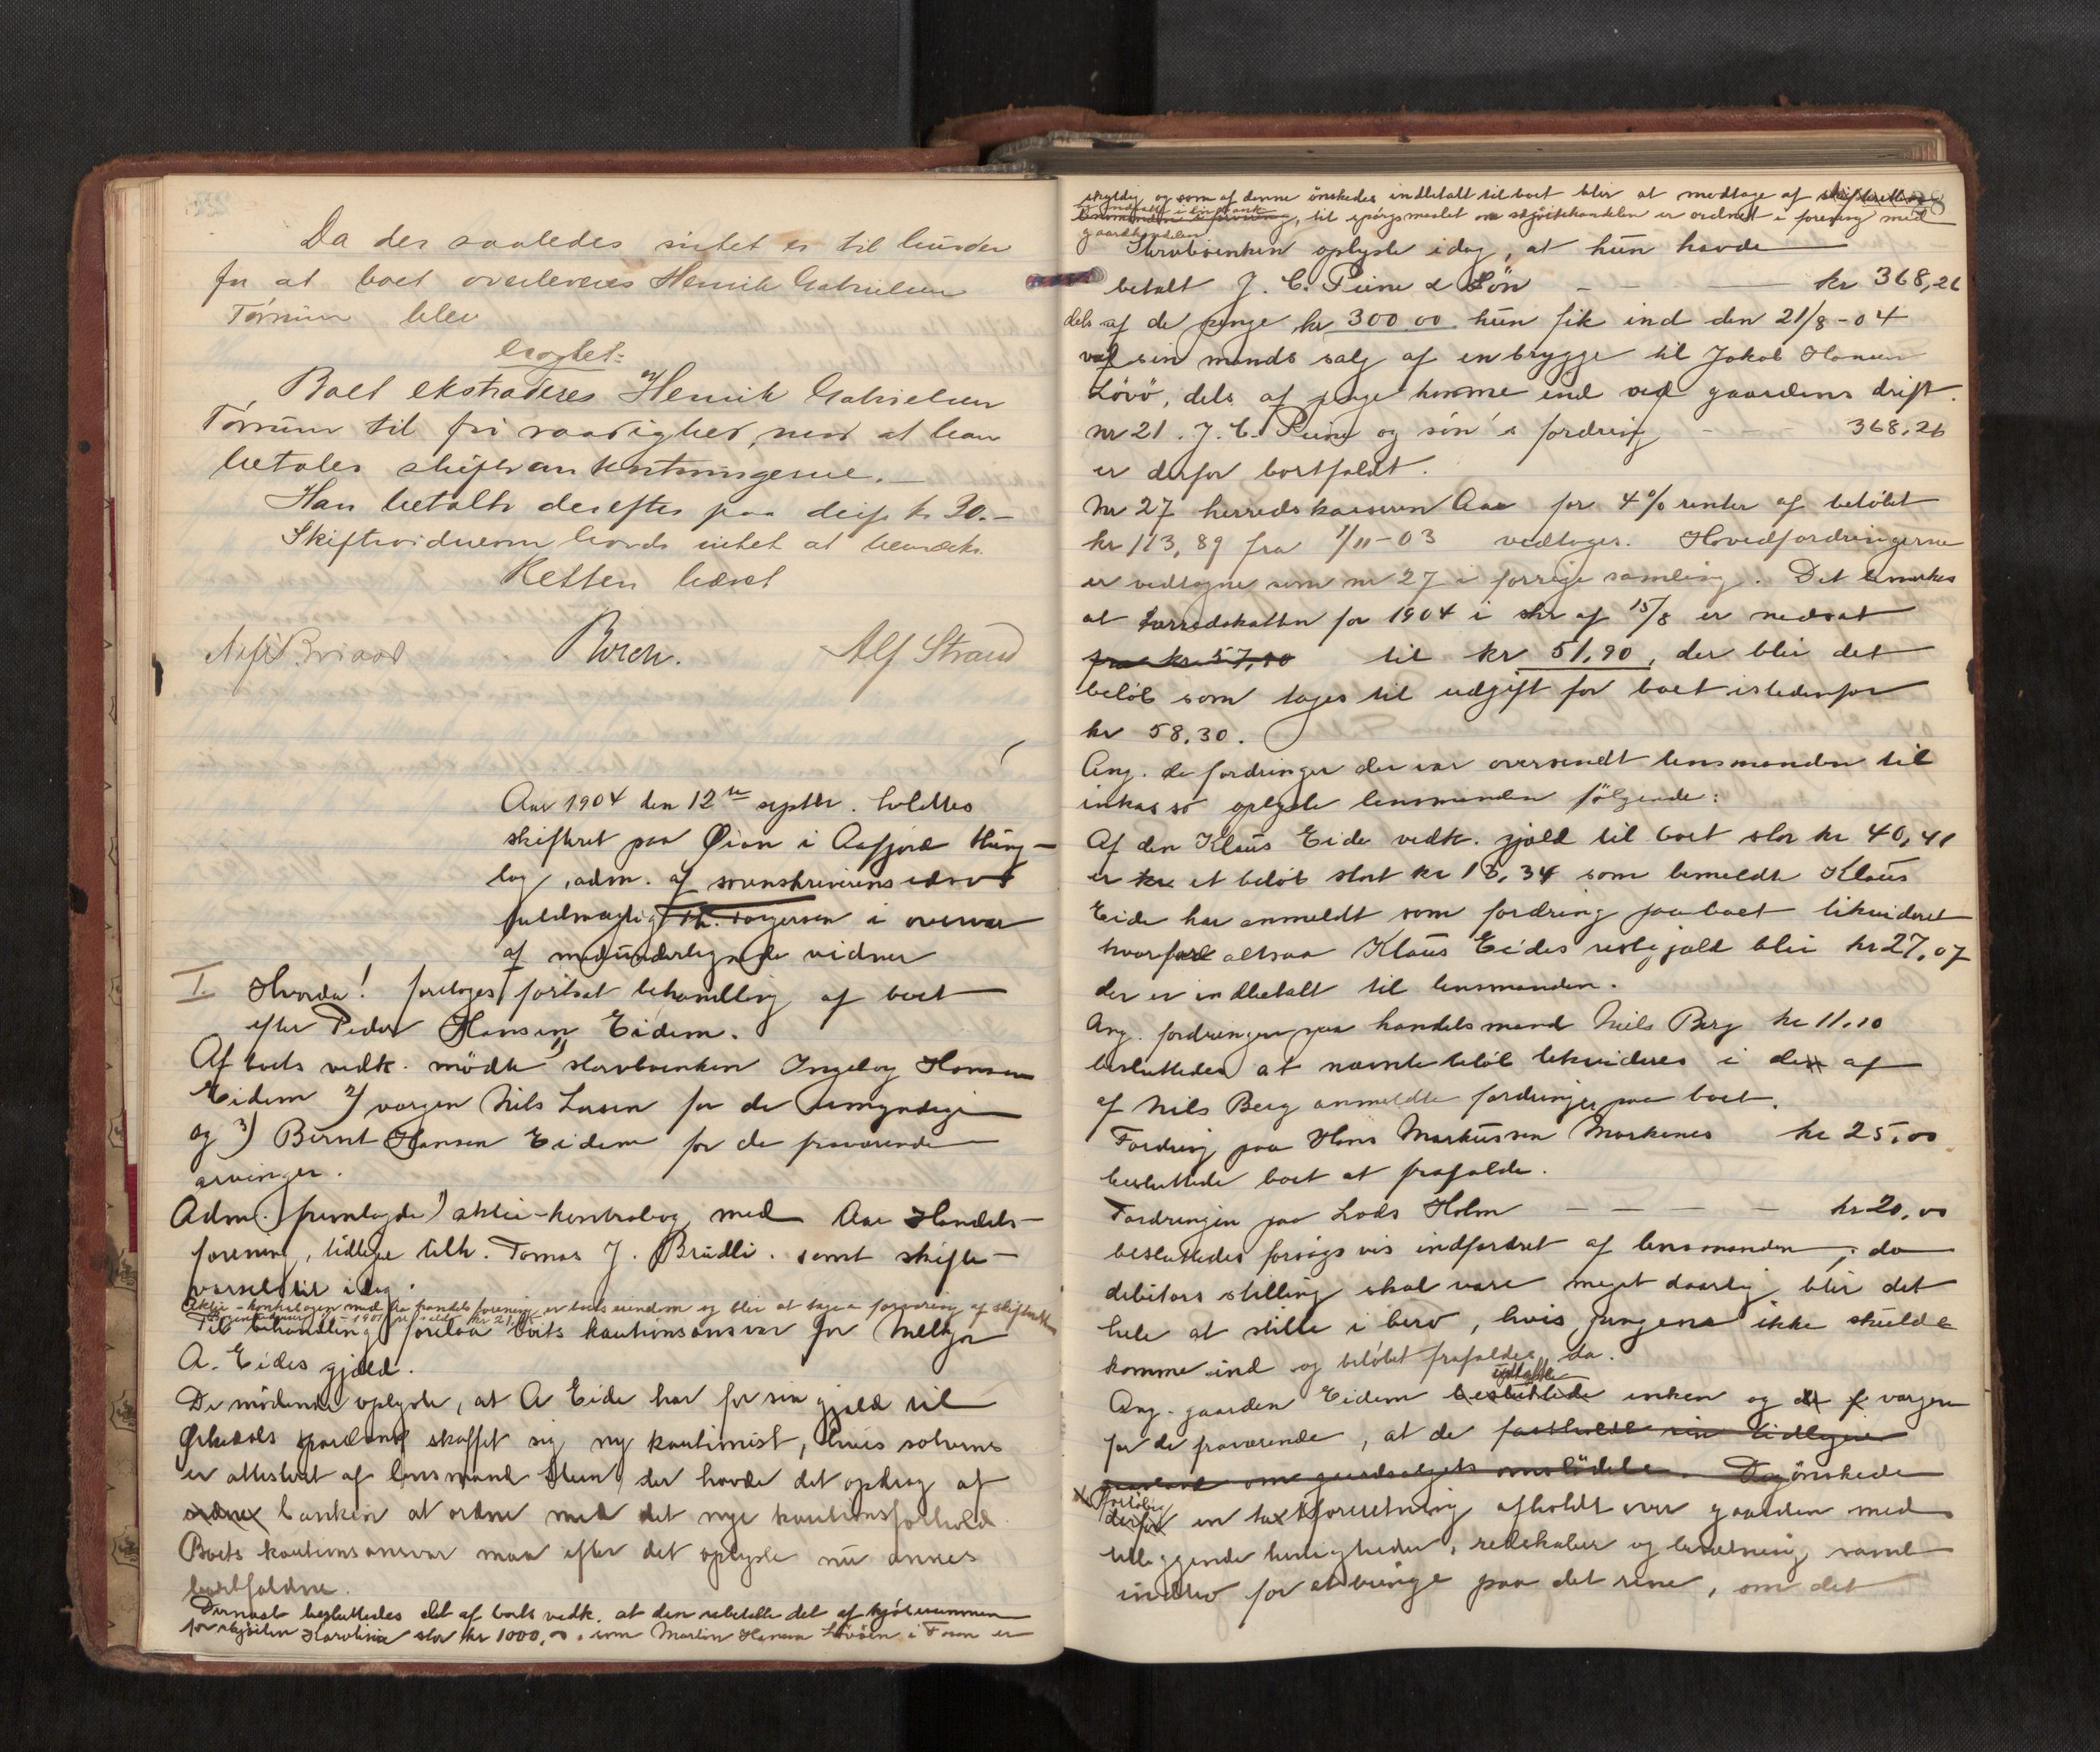 Da der saaledes intet er til hinder
for at boet overleveres Henrik Gabrielsen
Tørrum blev
Eragtet:
Boet ekstraderes Henrik Gabrielsen
Tørrum til fri raadighed, mod at han
betaler skifteomkostningerne.
Han betalte derefter paa deif kr 20.–
Skiftevidnerne havde intet at bemærke.
Retten hævet
Birch. Alf Strand
Aar 1904 den 12te septbr. holdtes
skifteret paa Øian i Aafjord thing-
lag, adm. af sorenskriverens edsv
fuldmægtig Th. Torgersen i overvær
af medundertegnede vidner
I. Hvorda! foretoges fortsat behandling af boet
efter Peder Hansen Eidem.
Af boets vedk. mødte 1) skovbenken Ingeborg Hansen
Eidem 2) vergen Nils Larsen for de umyndige
og 3) Bernt Hansen Eidem for de fraværende
arvinger.
Adm. fremlagde 1) aktie-kontrabog med Aae Handels-
forening, tidligere tilh. Tomas J. Brudli. samt skifte-
varsel til idag.
Aktie-kontrabogen med Aa handelsforening er boets eiendom og blir at tage i forvaring af skifteretten
Til behandling forelaa boets kautionsansvar for Melkjor
A. Eides gjæld.
De mødende oplyste, at A Eide har for sin gjæld til
Ørlands sparebank skaffet sig ny kautionist, hvis solvens
er attesteret af lensmand Steen, der havde det opdrag af
ordne banken at ordne med det nye kautionsforhold
Boets kautionsansvar maa efter det oplyste nu ansees
bortfaldne.
Dernæst besluttedes det af boets vedk. at den resterende del af kjøbesummen
for skjøiten Karolina stor kr 1000,00, som Martin Hansen Løvøen i Fosen er
28
skyldig og som af denne ønskedes indbetalt til boet blir at modtage af skifteretten
lensmanden i forvaring, til spørgsmaalet om skjøitehandelen er ordnet i forening med
gaardhandelen
Skrobøenken oplyste idag, at hun havde
betalt J. C. Piene & Søn – – – kr 368,26
dels af de penge kr 300 00 hun fik ind den 21/8-04
ved sin mands salg af en brygge til Jakob Hansen
Løvø, dels af penge komme ind ved gaardens drift.
nr 21. J. C. Piene og søn's fordring – – – 368,26
er derfor bortfaldt.
Nr 27 herredskasseren Aae for 4% renter af beløbet
kr 113,89 fra 1/11-03 vedtages. Hovedfordringerne
er vedtagne som nr 27 i forrige samling. Det bemærkes
at herredskatten for 1904 i skr af 15/8 er nedsat
fra kr 57,90 til kr 51,90, der blir det
beløb som tages til udgift for boet istedenfor
kr 58.30.
Ang. de fordringer der var oversendt lensmanden til
inkasso oplyste lensmanden følgende:
Af den Klaus Eide vedk. gjæld til boet stor kr 40,41
er kr et beløb stort kr 13,34 som bemeldte Klaus
Eide har anmeldt som fordring paa boet likvideret
hvorfor altsaa Klaus Eides restgjæld blir kr 27,07
der er indbetalt til lensmanden.
Ang. fordringen paa handelsmand Niels Berg kr 11.10
besluttedes at nævnte beløb likvideres i den af
af Nils Berg anmeldte fordringer paa boet.
Fordring paa Hans Markussen Markenes kr 25,00
besluttede boet at frafalde.
Fordringen paa Lods Holm – – – – kr 20,00
besluttedes forsøgsvis indfordret af lensmanden; da
debitors stilling skal være meget daarlig blir det
hele at stille i bero, hvis pengene ikke skulde
komme ind og beløbet frafaldes da.
vedtoges
Ang. gaarden Eidem besluttede enken og vergen
for de fraværende, at de fastholdt sin tidligere
paastand om gaardsalgets omstødelse. Dog ønskede
foreløbig
derfor en taxtforretning afholdt over gaarden med
tilliggende herligheder, redskaber og besætning samt
indbo for at bringe paa det rene, om det